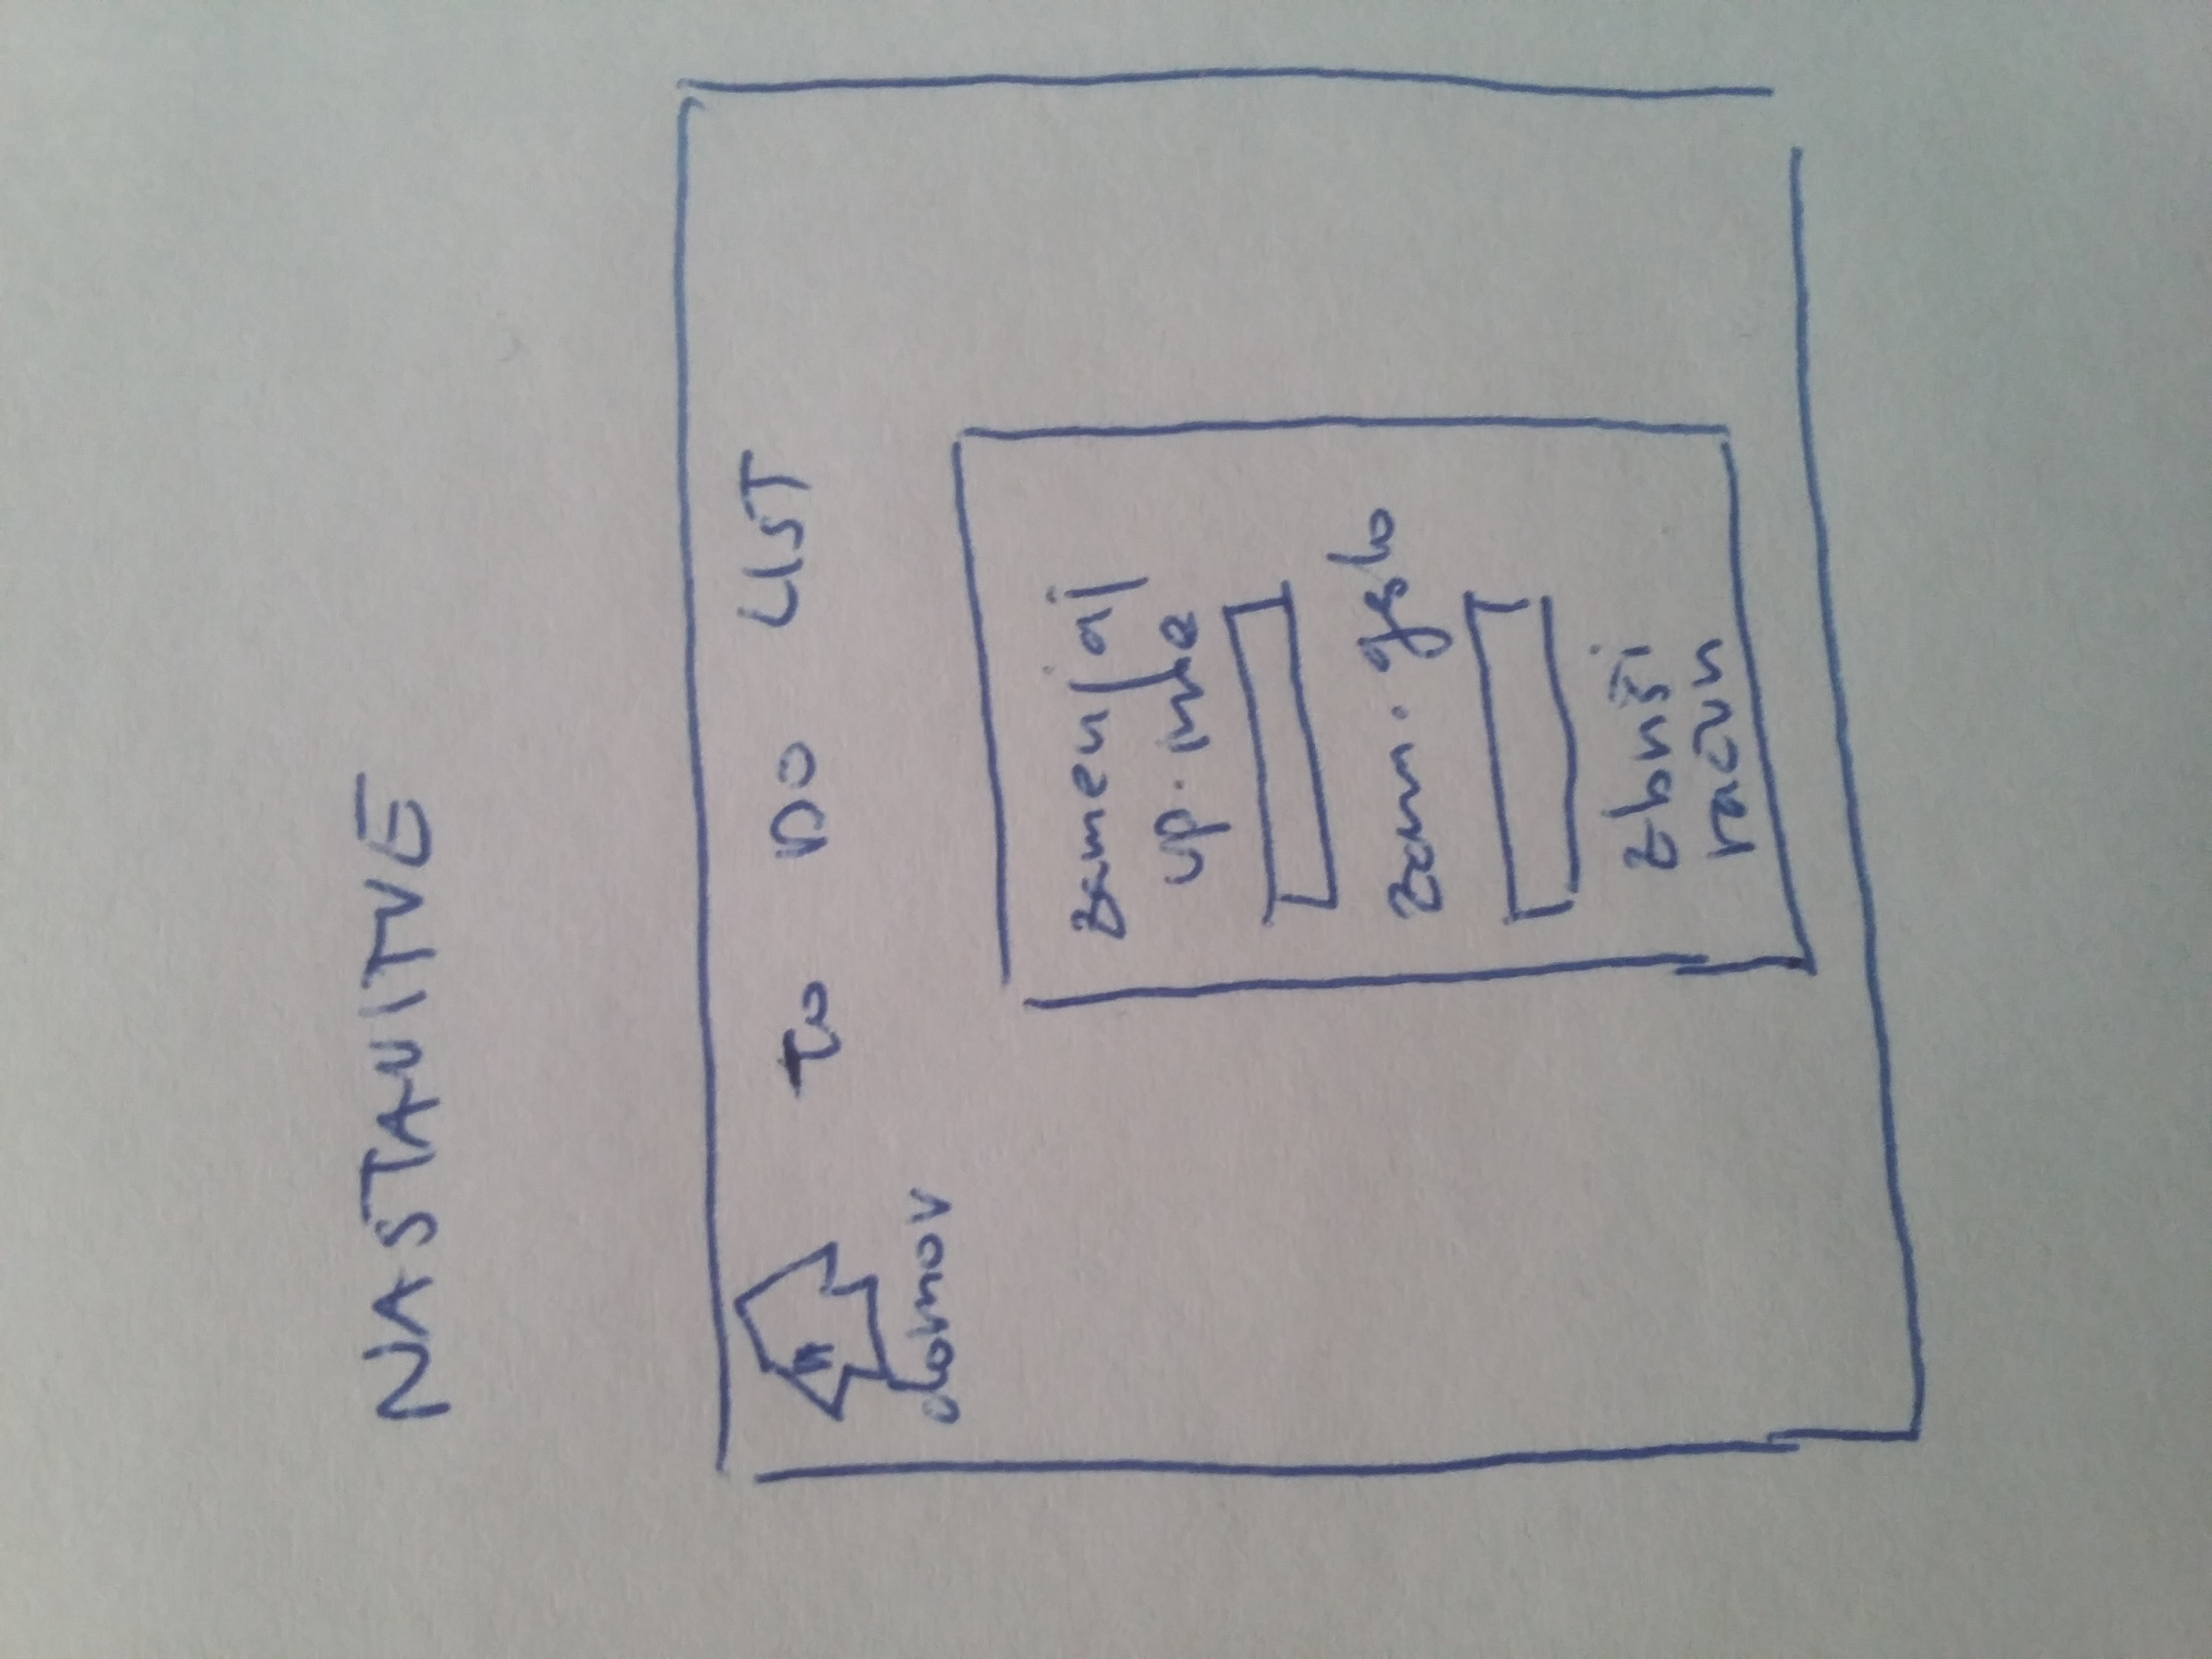 NASTAVITVE
TO DO LIST
domov
zamenjaj
up. ime
zam. geslo
zbriši
račun